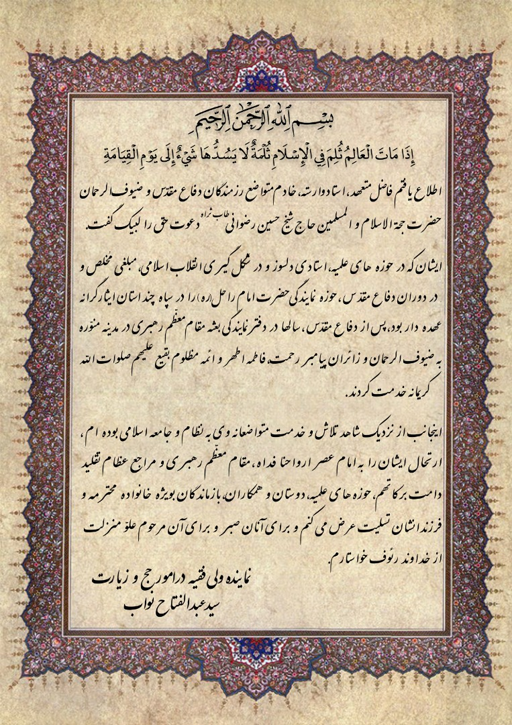 بسم الله الرحمن الرحیم
إِذَا مَاتَ الْعَالِمُ ثُلِمَ فِي الْإِسْلَامِ ثُلْمَةٌ لَا يَسُدُّهَا شَيْءٌ إِلَى يَوْمِ الْقِيَامَةِ
اطلاع یافتم فاضل متعهد، استاد وارسته، خادم متواضع رزمندگان دفاع مقدس و ضیوف الرحمان
حضرت حجة الاسلام و المسلمین حاج شیخ حسین رضوانی طاب ثراه دعوت حق را لبیک گفت.
ایشان که در حوزه های علمیه، استادی دلسوز و در شکل گیری انقلاب اسلامی، مبلغی مخلص و
در دوران دفاع مقدس، حوزه نمایندگی حضرت امام راحل(ره) را در سپاه چند استان ایثارگرانه
عهده دار بود، پس از دفاع مقدس، سالها در دفتر نمایندگی بعثه مقام معظّم رهبری در مدینه منوّره
به ضیوف الرحمان و زائران پیامبر رحمت، فاطمه اطهر و ائمه مظلوم بقیع علیهم صلوات الله
کریمانه خدمت کردند.
اینجانب از نزدیک شاهد تلاش و خدمت متواضعانه وی به نظام و جامعه اسلامی بوده ام،
ارتحال ایشان را به امام عصر ارواحنا فداه، مقام معظّم رهبری و مراجع عظام تقلید
دامت برکاتهم، حوزه های علمیه، دوستان و همکاران، بازماندگان بویژه خانواده محترمه و
فرزندانشان تسلیت عرض می کنم و برای آنان صبر و برای آن مرحوم علوّ منزلت
از خداوند رئوف خواستارم.
نماینده ولی فقیه در امور حج و زیارت
سید عبدالفتاح نواب